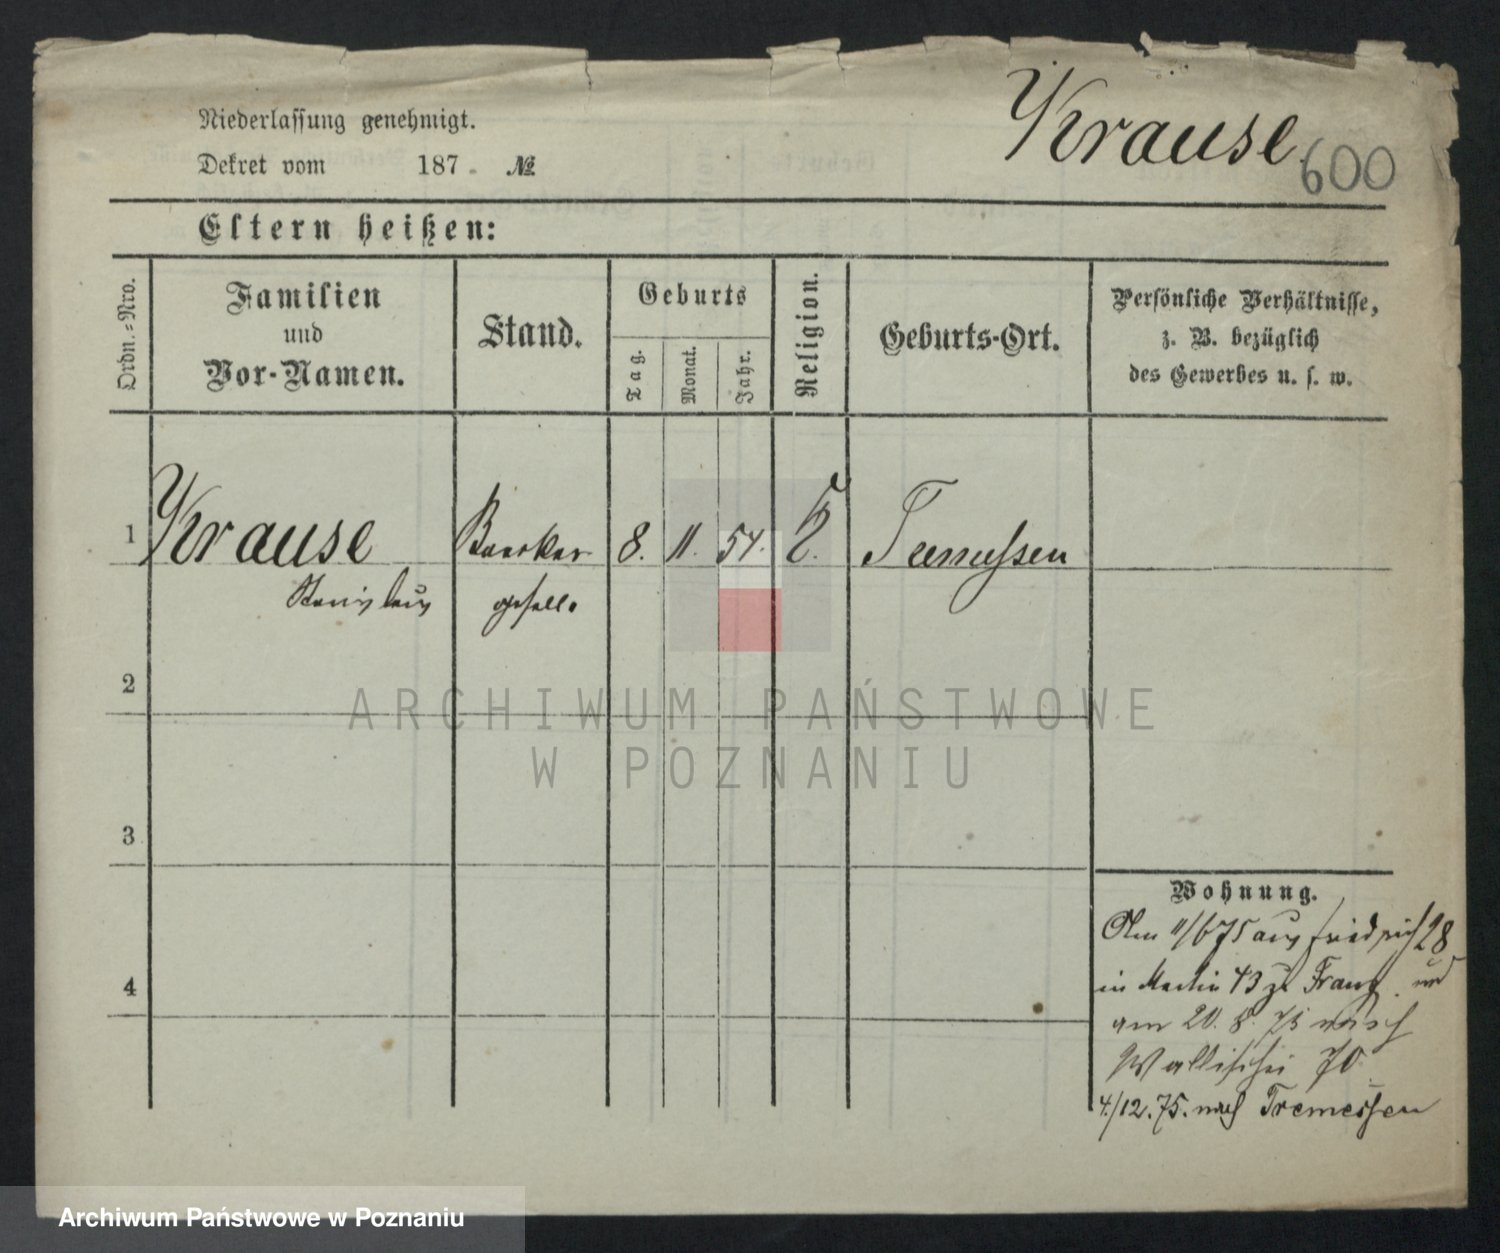 Krause
600
Niederlassung genehmigt.
Dekret vom 187 . №
Eltern heißen:
Ordn.-Nro.
Familien
und
Vor-Namen.
Stand.
Geburts
Tag.
Monat.
Jahr.
Religion.
Geburts-Ort.
Persönliche Verhältnisse,
z. B. bezüglich
des Gewerbes u. s. w.
1 Krause Baecker 8. 11. 54. K. Tremessen
Stanislaus geselle
2
3
4
Wohnung.
11/6 75 aus Friedrich 28
in Martin 43 zu Franz und
am 20. 8. 75 nach
Wallischei 70.
4/12.75. nach Tremessen
ARCHIWUM PAŃSTWOWE
W POZNANIU
Archiwum Państwowe w Poznaniu